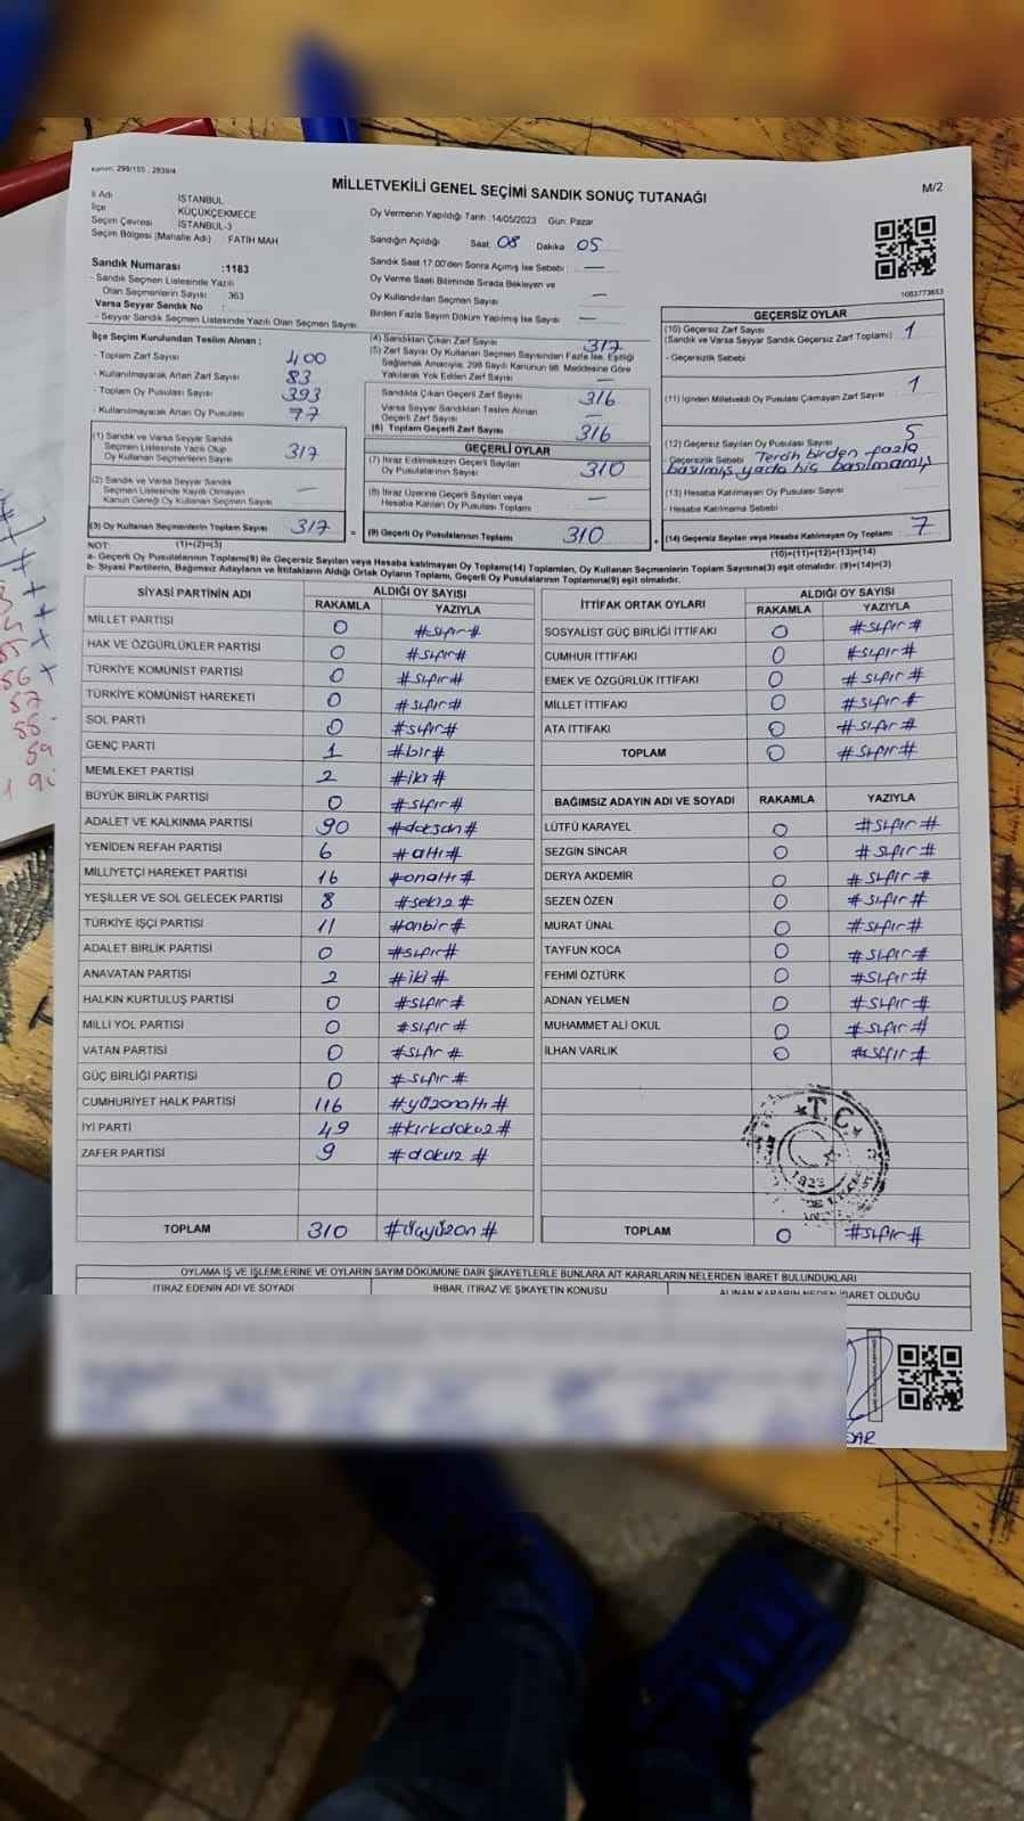 Kanun: 298/105 , 2839/4
MİLLETVEKİLİ GENEL SEÇİMİ SANDIK SONUÇ TUTANAĞI
M/2
İl Adı İSTANBUL
İlçe KÜÇÜKÇEKMECE
Seçim Çevresi İSTANBUL-3
Seçim Bölgesi (Mahalle Adı) FATİH MAH
Sandık Numarası :1183
- Sandık Seçmen Listesinde Yazılı
Olan Seçmenlerin Sayısı 363
Varsa Seyyar Sandık No
- Seyyar Sandık Seçmen Listesinde Yazılı Olan Seçmen Sayısı
Oy Vermenin Yapıldığı Tarih :14/05/2023 Gün: Pazar
Sandığın Açıldığı Saat: 08 Dakika 05
Sandık Saat 17.00'den Sonra Açılmış İse Sebebi —
Oy Verme Saati Bitiminde Sırada Bekleyen ve
Oy Kullandırılan Seçmen Sayısı —
Birden Fazla Sayım Döküm Yapılmış İse Sayısı —
1083773653
İlçe Seçim Kurulundan Teslim Alınan ;
- Toplam Zarf Sayısı 400
- Kullanılmayarak Artan Zarf Sayısı 83
- Toplam Oy Pusulası Sayısı 393
- Kullanılmayarak Artan Oy Pusulası 77
(1) Sandık ve Varsa Seyyar Sandık
Seçmen Listesinde Yazılı Olup
Oy Kullanan Seçmenlerin Sayısı 317
(2) Sandık ve Varsa Seyyar Sandık
Seçmen Listesinde Kayıtlı Olmayan
Kanun Gereği Oy Kullanan Seçmen Sayısı —
(3) Oy Kullanan Seçmenlerin Toplam Sayısı 317 =
(4) Sandıktan Çıkan Zarf Sayısı 317
(5) Zarf Sayısı Oy Kullanan Seçmen Sayısından Fazla İse, Eşitliği
Sağlamak Amacıyla, 298 Sayılı Kanunun 98. Maddesine Göre
Yakılarak Yok Edilen Zarf Sayısı —
Sandıkta Çıkan Geçerli Zarf Sayısı 316
Varsa Seyyar Sandıktan Teslim Alınan
Geçerli Zarf Sayısı —
(6) Toplam Geçerli Zarf Sayısı 316
GEÇERLİ OYLAR
(7) İtiraz Edilmeksizin Geçerli Sayılan
Oy Pusulalarının Sayısı 310
(8) İtiraz Üzerine Geçerli Sayılan veya
Hesaba Katılan Oy Pusulaları Toplamı —
(9) Geçerli Oy Pusulalarının Toplamı 310 +
GEÇERSİZ OYLAR
(10) Geçersiz Zarf Sayısı
(Sandık ve Varsa Seyyar Sandık Geçersiz Zarf Toplamı) 1
- Geçersizlik Sebebi
(11) İçinden Milletvekili Oy Pusulası Çıkmayan Zarf Sayısı 1
(12) Geçersiz Sayılan Oy Pusulası Sayısı 5
- Geçersizlik Sebebi Tercih birden fazla
basılmış yada hiç basılmamış
(13) Hesaba Katılmayan Oy Pusulası Sayısı
- Hesaba Katılmama Sebebi
(14) Geçersiz Sayılan veya Hesaba Katılmayan Oy Toplamı 7
NOT: (1)+(2)=(3) (10)+(11)+(12)+(13)=(14)
a- Geçerli Oy Pusulalarının Toplamı(9) ile Geçersiz Sayılan veya Hesaba katılmayan Oy Toplamı(14) Toplamları, Oy Kullanan Seçmenlerin Toplam Sayısına(3) eşit olmalıdır. (9)+(14)=(3)
b- Siyasi Partilerin, Bağımsız Adayların ve İttifakların Aldığı Ortak Oyların Toplamı, Geçerli Oy Pusulalarının Toplamına(9) eşit olmalıdır.
SİYASİ PARTİNİN ADI ALDIĞI OY SAYISI
RAKAMLA YAZIYLA
MİLLET PARTİSİ 0 #sıfır#
HAK VE ÖZGÜRLÜKLER PARTİSİ 0 #sıfır#
TÜRKİYE KOMÜNİST PARTİSİ 0 #sıfır#
TÜRKİYE KOMÜNİST HAREKETİ 0 #sıfır#
SOL PARTİ 0 #sıfır#
GENÇ PARTİ 1 #bir#
MEMLEKET PARTİSİ 2 #iki#
BÜYÜK BİRLİK PARTİSİ 0 #sıfır#
ADALET VE KALKINMA PARTİSİ 90 #doksan#
YENİDEN REFAH PARTİSİ 6 #altı#
MİLLİYETÇİ HAREKET PARTİSİ 16 #onaltı#
YEŞİLLER VE SOL GELECEK PARTİSİ 8 #sekiz#
TÜRKİYE İŞÇİ PARTİSİ 11 #onbir#
ADALET BİRLİK PARTİSİ 0 #sıfır#
ANAVATAN PARTİSİ 2 #iki#
HALKIN KURTULUŞ PARTİSİ 0 #sıfır#
MİLLİ YOL PARTİSİ 0 #sıfır#
VATAN PARTİSİ 0 #sıfır#
GÜÇ BİRLİĞİ PARTİSİ 0 #sıfır#
CUMHURİYET HALK PARTİSİ 116 #yüzonaltı#
İYİ PARTİ 49 #kırkdokuz#
ZAFER PARTİSİ 9 #dokuz#
TOPLAM 310 #üçyüzon#
İTTİFAK ORTAK OYLARI ALDIĞI OY SAYISI
RAKAMLA YAZIYLA
SOSYALİST GÜÇ BİRLİĞİ İTTİFAKI 0 #sıfır#
CUMHUR İTTİFAKI 0 #sıfır#
EMEK VE ÖZGÜRLÜK İTTİFAKI 0 #sıfır#
MİLLET İTTİFAKI 0 #sıfır#
ATA İTTİFAKI 0 #sıfır#
TOPLAM 0 #sıfır#
BAĞIMSIZ ADAYIN ADI VE SOYADI RAKAMLA YAZIYLA
LÜTFÜ KARAYEL 0 #sıfır#
SEZGİN SİNCAR 0 #sıfır#
DERYA AKDEMİR 0 #sıfır#
SEZEN ÖZEN 0 #sıfır#
MURAT ÜNAL 0 #sıfır#
TAYFUN KOCA 0 #sıfır#
FEHMİ ÖZTÜRK 0 #sıfır#
ADNAN YELMEN 0 #sıfır#
MUHAMMET ALİ OKUL 0 #sıfır#
İLHAN VARLIK 0 #sıfır#
T.C.
1923
TOPLAM 0 #sıfır#
OYLAMA İŞ VE İŞLEMLERİNE VE OYLARIN SAYIM DÖKÜMÜNE DAİR ŞİKAYETLERLE BUNLARA AİT KARARLARIN NELERDEN İBARET BULUNDUKLARI
İTİRAZ EDENİN ADI VE SOYADI İHBAR, İTİRAZ VE ŞİKAYETİN KONUSU ALINAN KARARIN NEDEN İBARET OLDUĞU